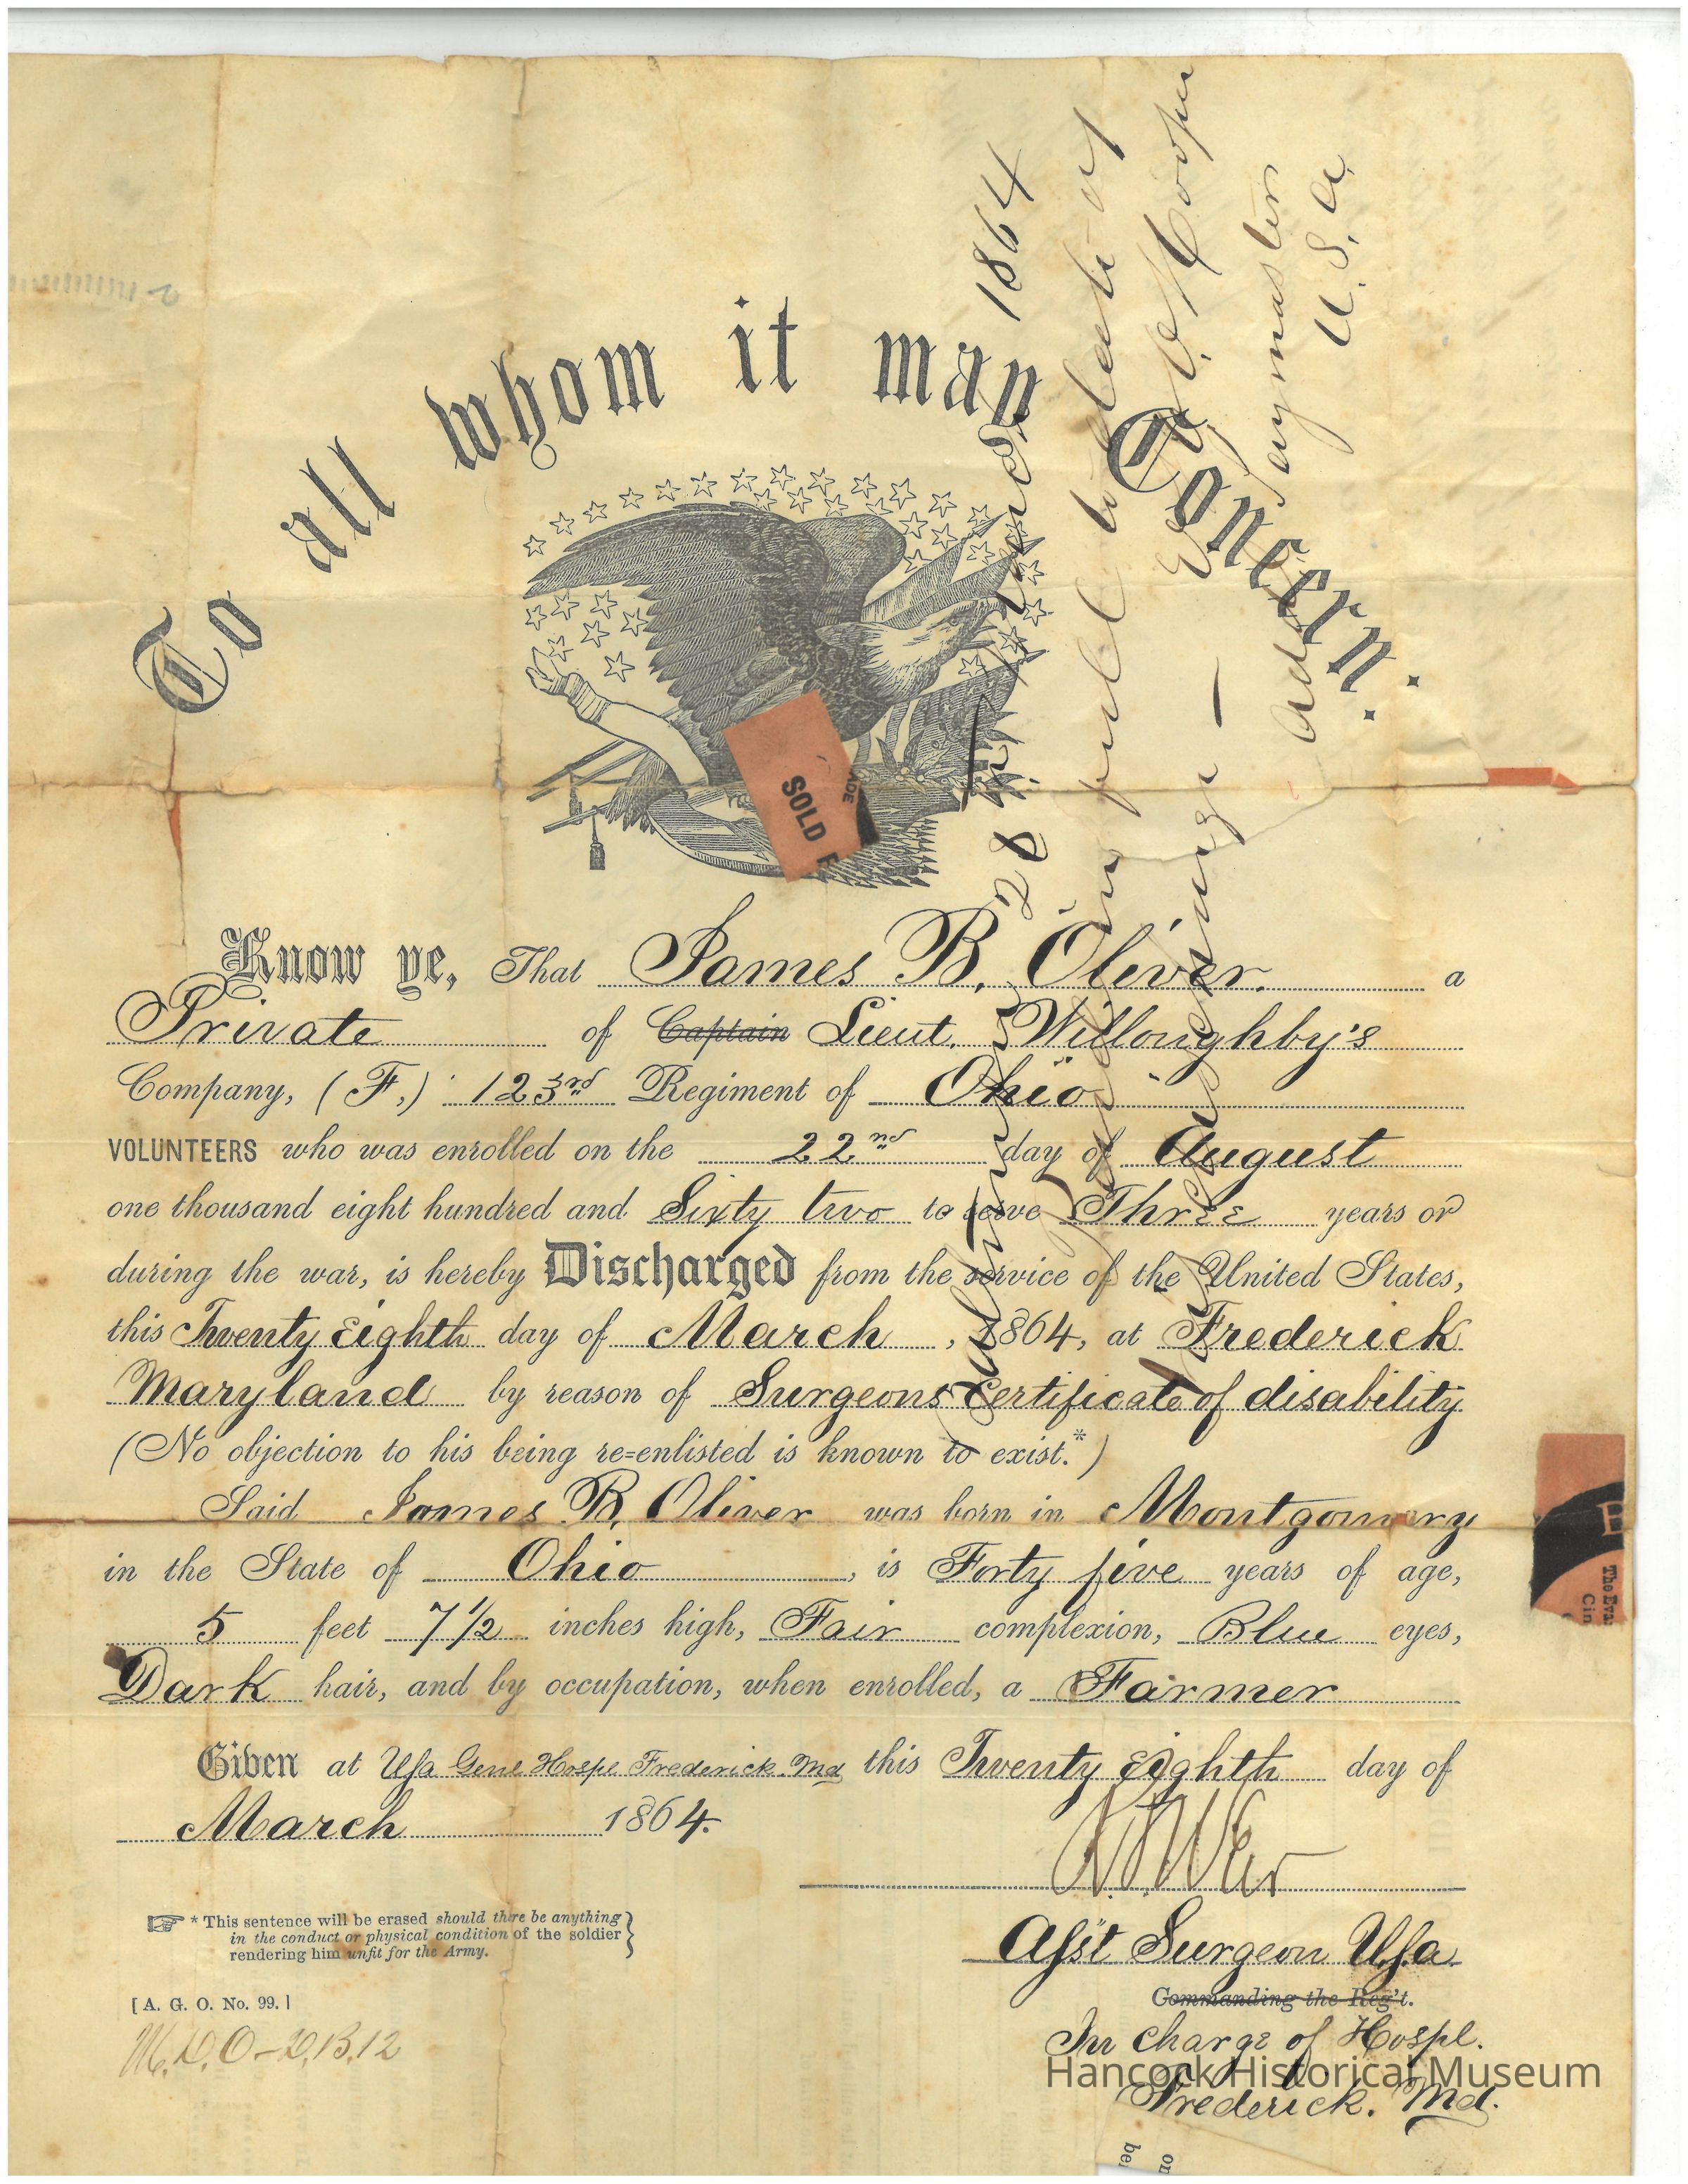 To all whom it may Concern.
Know ye, That James B. Oliver. a
Private of Captain Lieut. Willoughby's
Company, (F,) 123rd Regiment of Ohio
VOLUNTEERS who was enrolled on the 22nd day of August
one thousand eight hundred and Sixty two to serve Three years or
during the war, is hereby Discharged from the service of the United States,
this Twenty Eighth day of March, 1864, at Frederick
Maryland by reason of Surgeons Certificate of disability
(No objection to his being re=enlisted is known to exist.*)
Said James B. Oliver was born in Montgomery
in the State of Ohio, is Forty five years of age,
5 feet 7 1/2 inches high, Fair complexion, Blue eyes,
Dark hair, and by occupation, when enrolled, a Farmer
Given at Usa Genl Hospl Frederick. Md this Twenty Eighth day of
March 1864.
Asst Surgeon U.s.a.
Commanding the Reg't.
In charge of Hospl.
Frederick. Md.
* This sentence will be erased should there be anything
in the conduct or physical condition of the soldier
rendering him unfit for the Army.
[A. G. O. No. 99.]
Baltimore 28 March 1864
Paid in full to date of
discharge
Hooper
Paymaster
U.S.A.
SOLD
Hancock Historical Museum